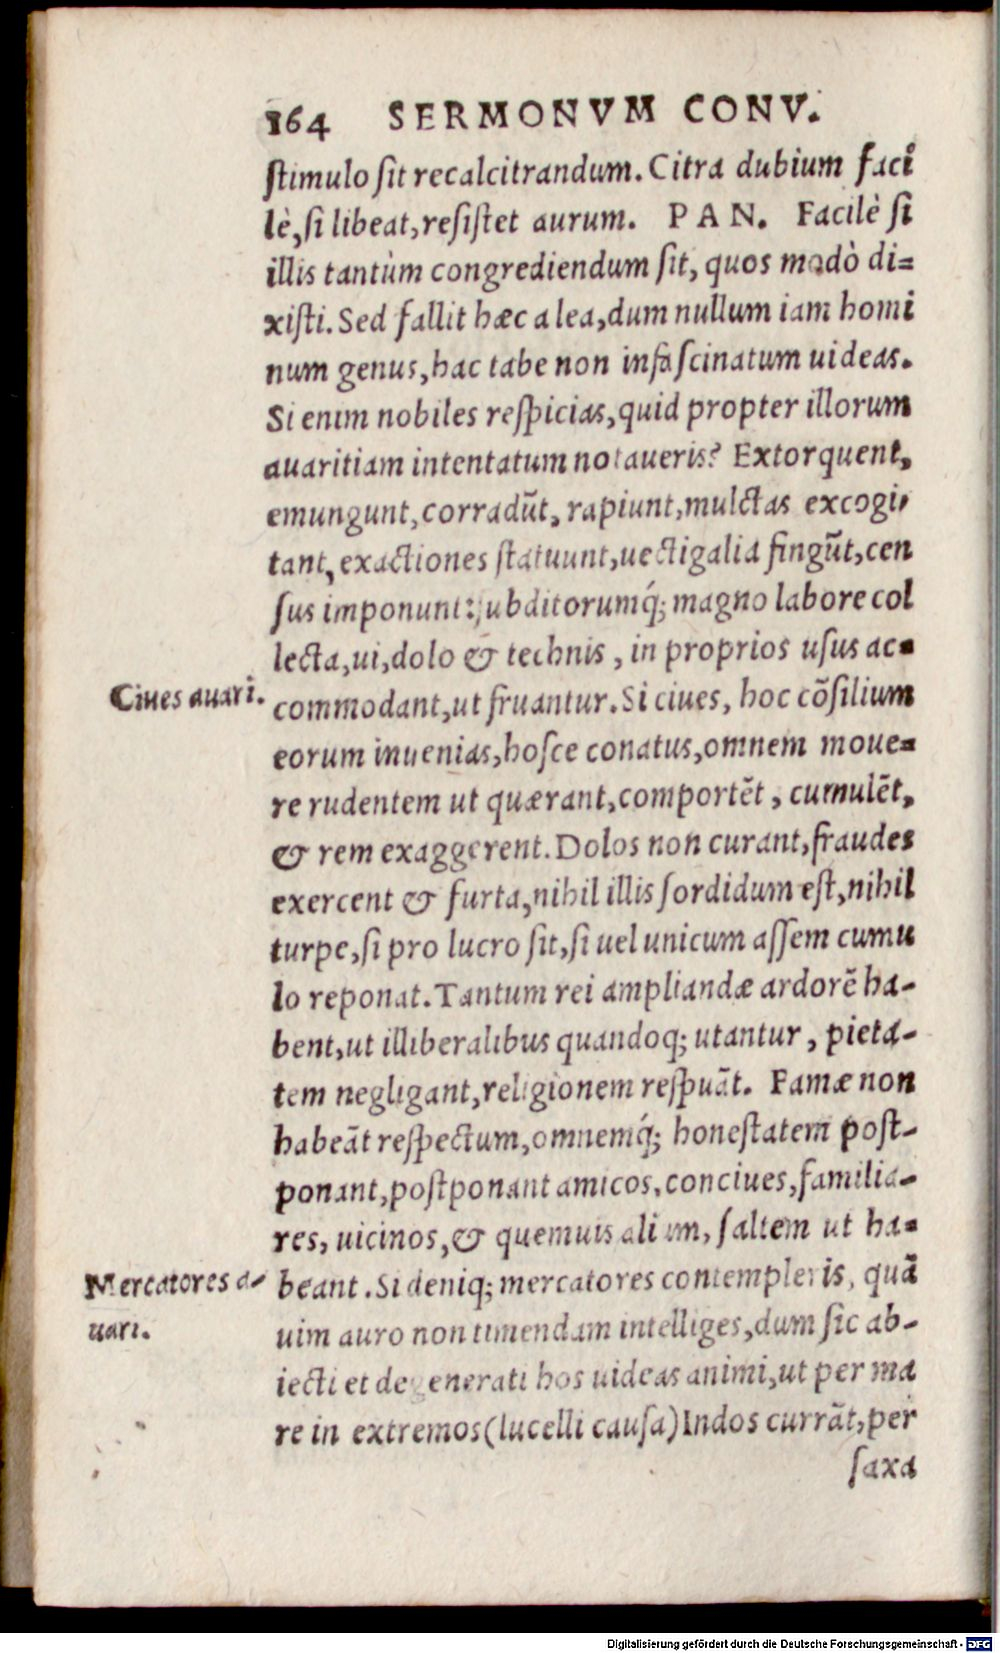 164 SERMONVM CONV.
ſtimulo ſit recalcitrandum. Citra dubium faci
lè, ſi libeat, reſiſtet aurum. PAN. Facilè ſi
illis tantùm congrediendum ſit, quos modò di=
xiſti. Sed fallit hæc alea, dum nullum iam homi
num genus, hac tabe non infaſcinatum uideas.
Si enim nobiles reſpicias, quid propter illorum
auaritiam intentatum notaueris? Extorquent,
emungunt, corradūt, rapiunt, mulctas excogi-
tant, exactiones ſtatuunt, uectigalia fingūt, cen
ſus imponunt: ſubditorumq́; magno labore col
lecta, ui, dolo & technis, in proprios uſus ac=
Ciues auari.
commodant, ut fruantur. Si ciues, hoc cōſilium
eorum inuenias, hoſce conatus, omnem moue=
re rudentem ut quærant, comportēt, cumulēt,
& rem exaggerent. Dolos non curant, fraudes
exercent & furta, nihil illis ſordidum eſt, nihil
turpe, ſi pro lucro ſit, ſi uel unicum aſſem cumu
lo reponat. Tantum rei ampliandæ ardorē ha-
bent, ut illiberalibus quandoq; utantur, pieta-
tem negligant, religionem reſpuāt. Famæ non
habeāt reſpectum, omnemq́; honeſtatem poſt-
ponant, poſtponant amicos, conciues, familia-
res, uicinos, & quemuis alium, ſaltem ut ha=
Mercatores a-
uari.
beant. Si deniq; mercatores contempleris, quā
uim auro non timendam intelliges, dum ſic ab-
iecti et degenerati hos uideas animi, ut per ma
re in extremos (lucelli cauſa) Indos currāt, per
ſaxa
Digitalisierung gefördert durch die Deutsche Forschungsgemeinschaft - DFG